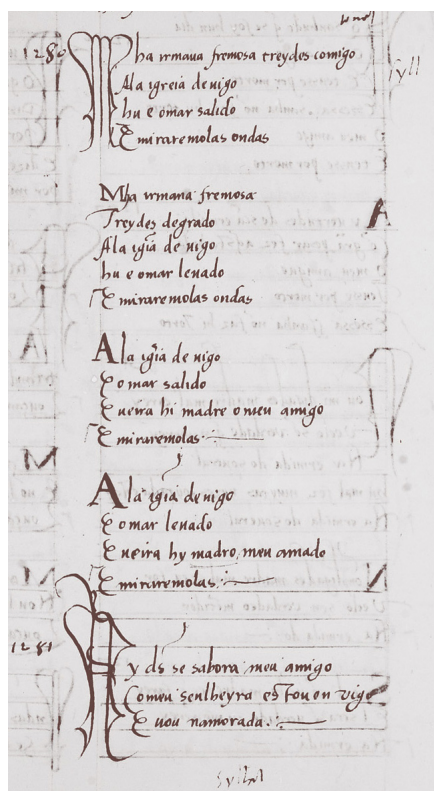 1280
Mha irmana fremosa treydes comigo
Ala igreia de uigo
hu e omar salido
E miraremolas ondas
Mha irmana fremosa
Treydes degrado
Ala igia de uigo
hu e omar leuado
E miraremolas ondas
Ala igia de uigo
E omar salido
E ueira hi madre o meu amigo
E miraremolas
Ala igia de uigo
E omar leuado
E ueira hy madre, meu amado
E miraremolas
1281
Ay ds se sabora meu amigo
Comeu senlheyra estou en uigo
E uou namorada